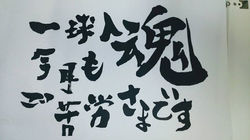 一球入魂
今年も
ご苦労さまです